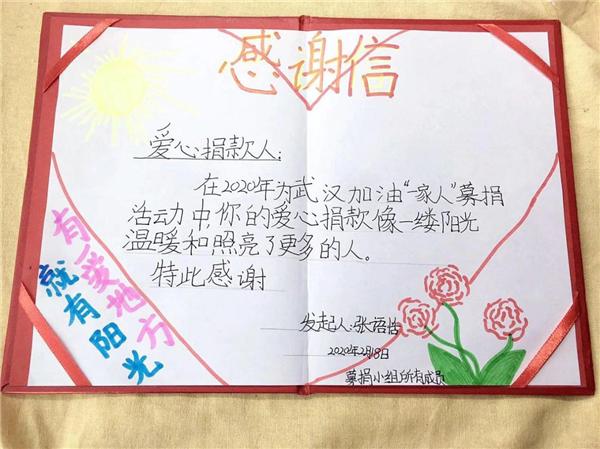 感谢信
爱心捐款人:
在2020年为武汉加油"一家人"募捐
活动中,你的爱心捐款像一缕阳光
温暖和照亮了更多的人。
特此感谢
有爱地方
就有阳光
发起人:张语恬
2020年2月8日
募捐小组所有成员